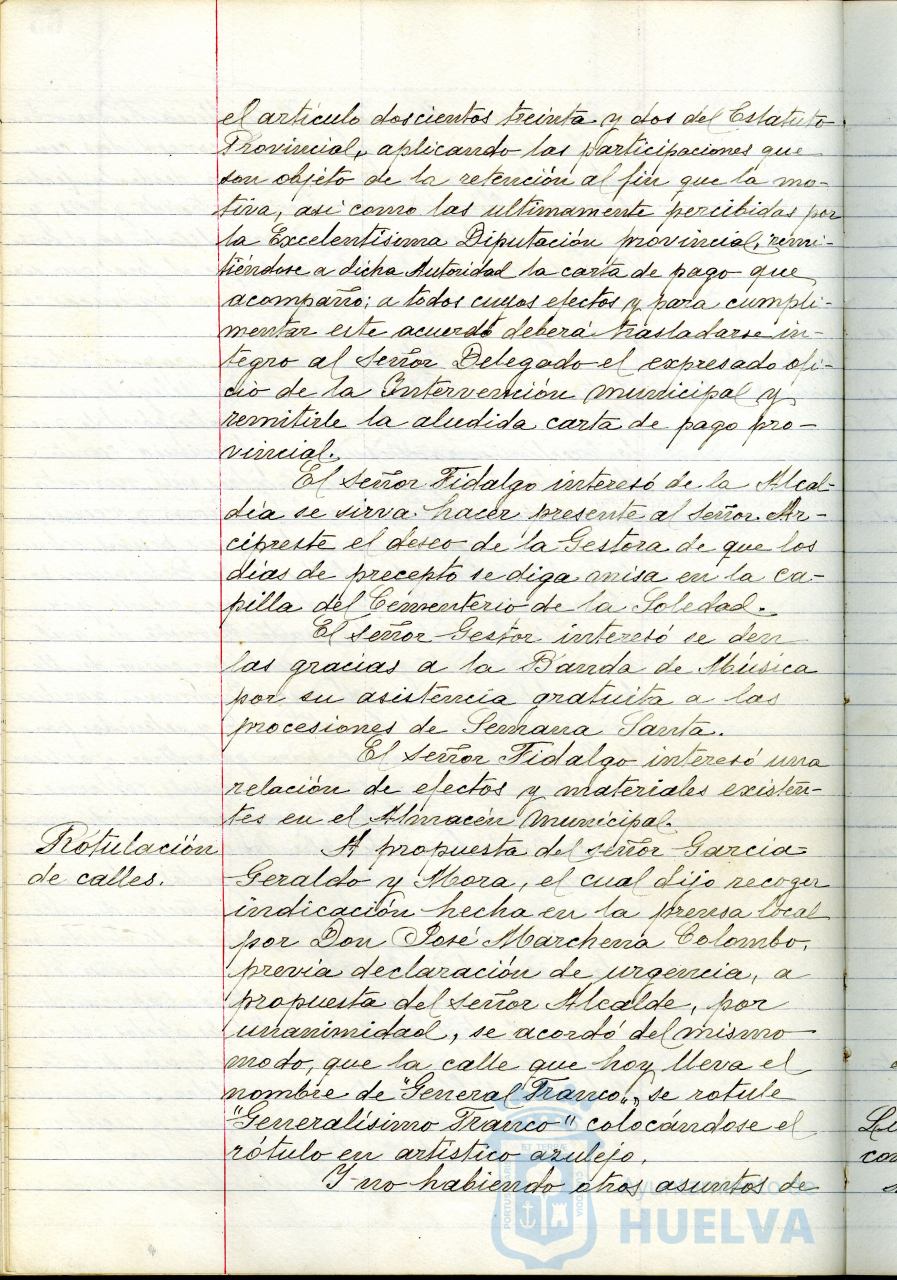 el artículo doscientos treinta y dos del Estatuto
Provincial, aplicando las participaciones que
son objeto de la retención al fin que la mo-
tiva, así como las ultimamente percibidas por
la Excelentisima Diputación provincial, remi-
tiéndose a dicha Autoridad la carta de pago que
acompaño; a todos cuyos efectos y para cumpli-
mentar este acuerdo deberá trasladarse in-
tegro al señor Delegado el expresado ofi-
cio de la Intervención municipal y
remitirle la aludida carta de pago pro-
vincial.
El señor Fidalgo interesó de la Alcal-
día se sirva hacer presente al señor Ar-
cipreste el deseo de la Gestora de que los
días de precepto se diga misa en la ca-
pilla del Cementerio de la Soledad.
El señor Gestor interesó se den
las gracias a la Banda de Música
por su asistencia gratuita a las
procesiones de Semana Santa.
El señor Fidalgo interesó una
relación de efectos y materiales existen-
tes en el Almacén municipal.
Rotulación
de calles.
A propuesta del señor Garcia-
Geraldo y Mora, el cual dijo recoger
indicación hecha en la prensa local
por Don José Marchena Colombo,
previa declaración de urgencia, a
propuesta del señor Alcalde, por
unanimidad, se acordó del mismo
modo, que la calle que hoy lleva el
nombre de "General Franco", se rotule
"Generalísimo Franco" colocándose el
rótulo en artístico azulejo.
Y no habiendo otros asuntos de
HUELVA